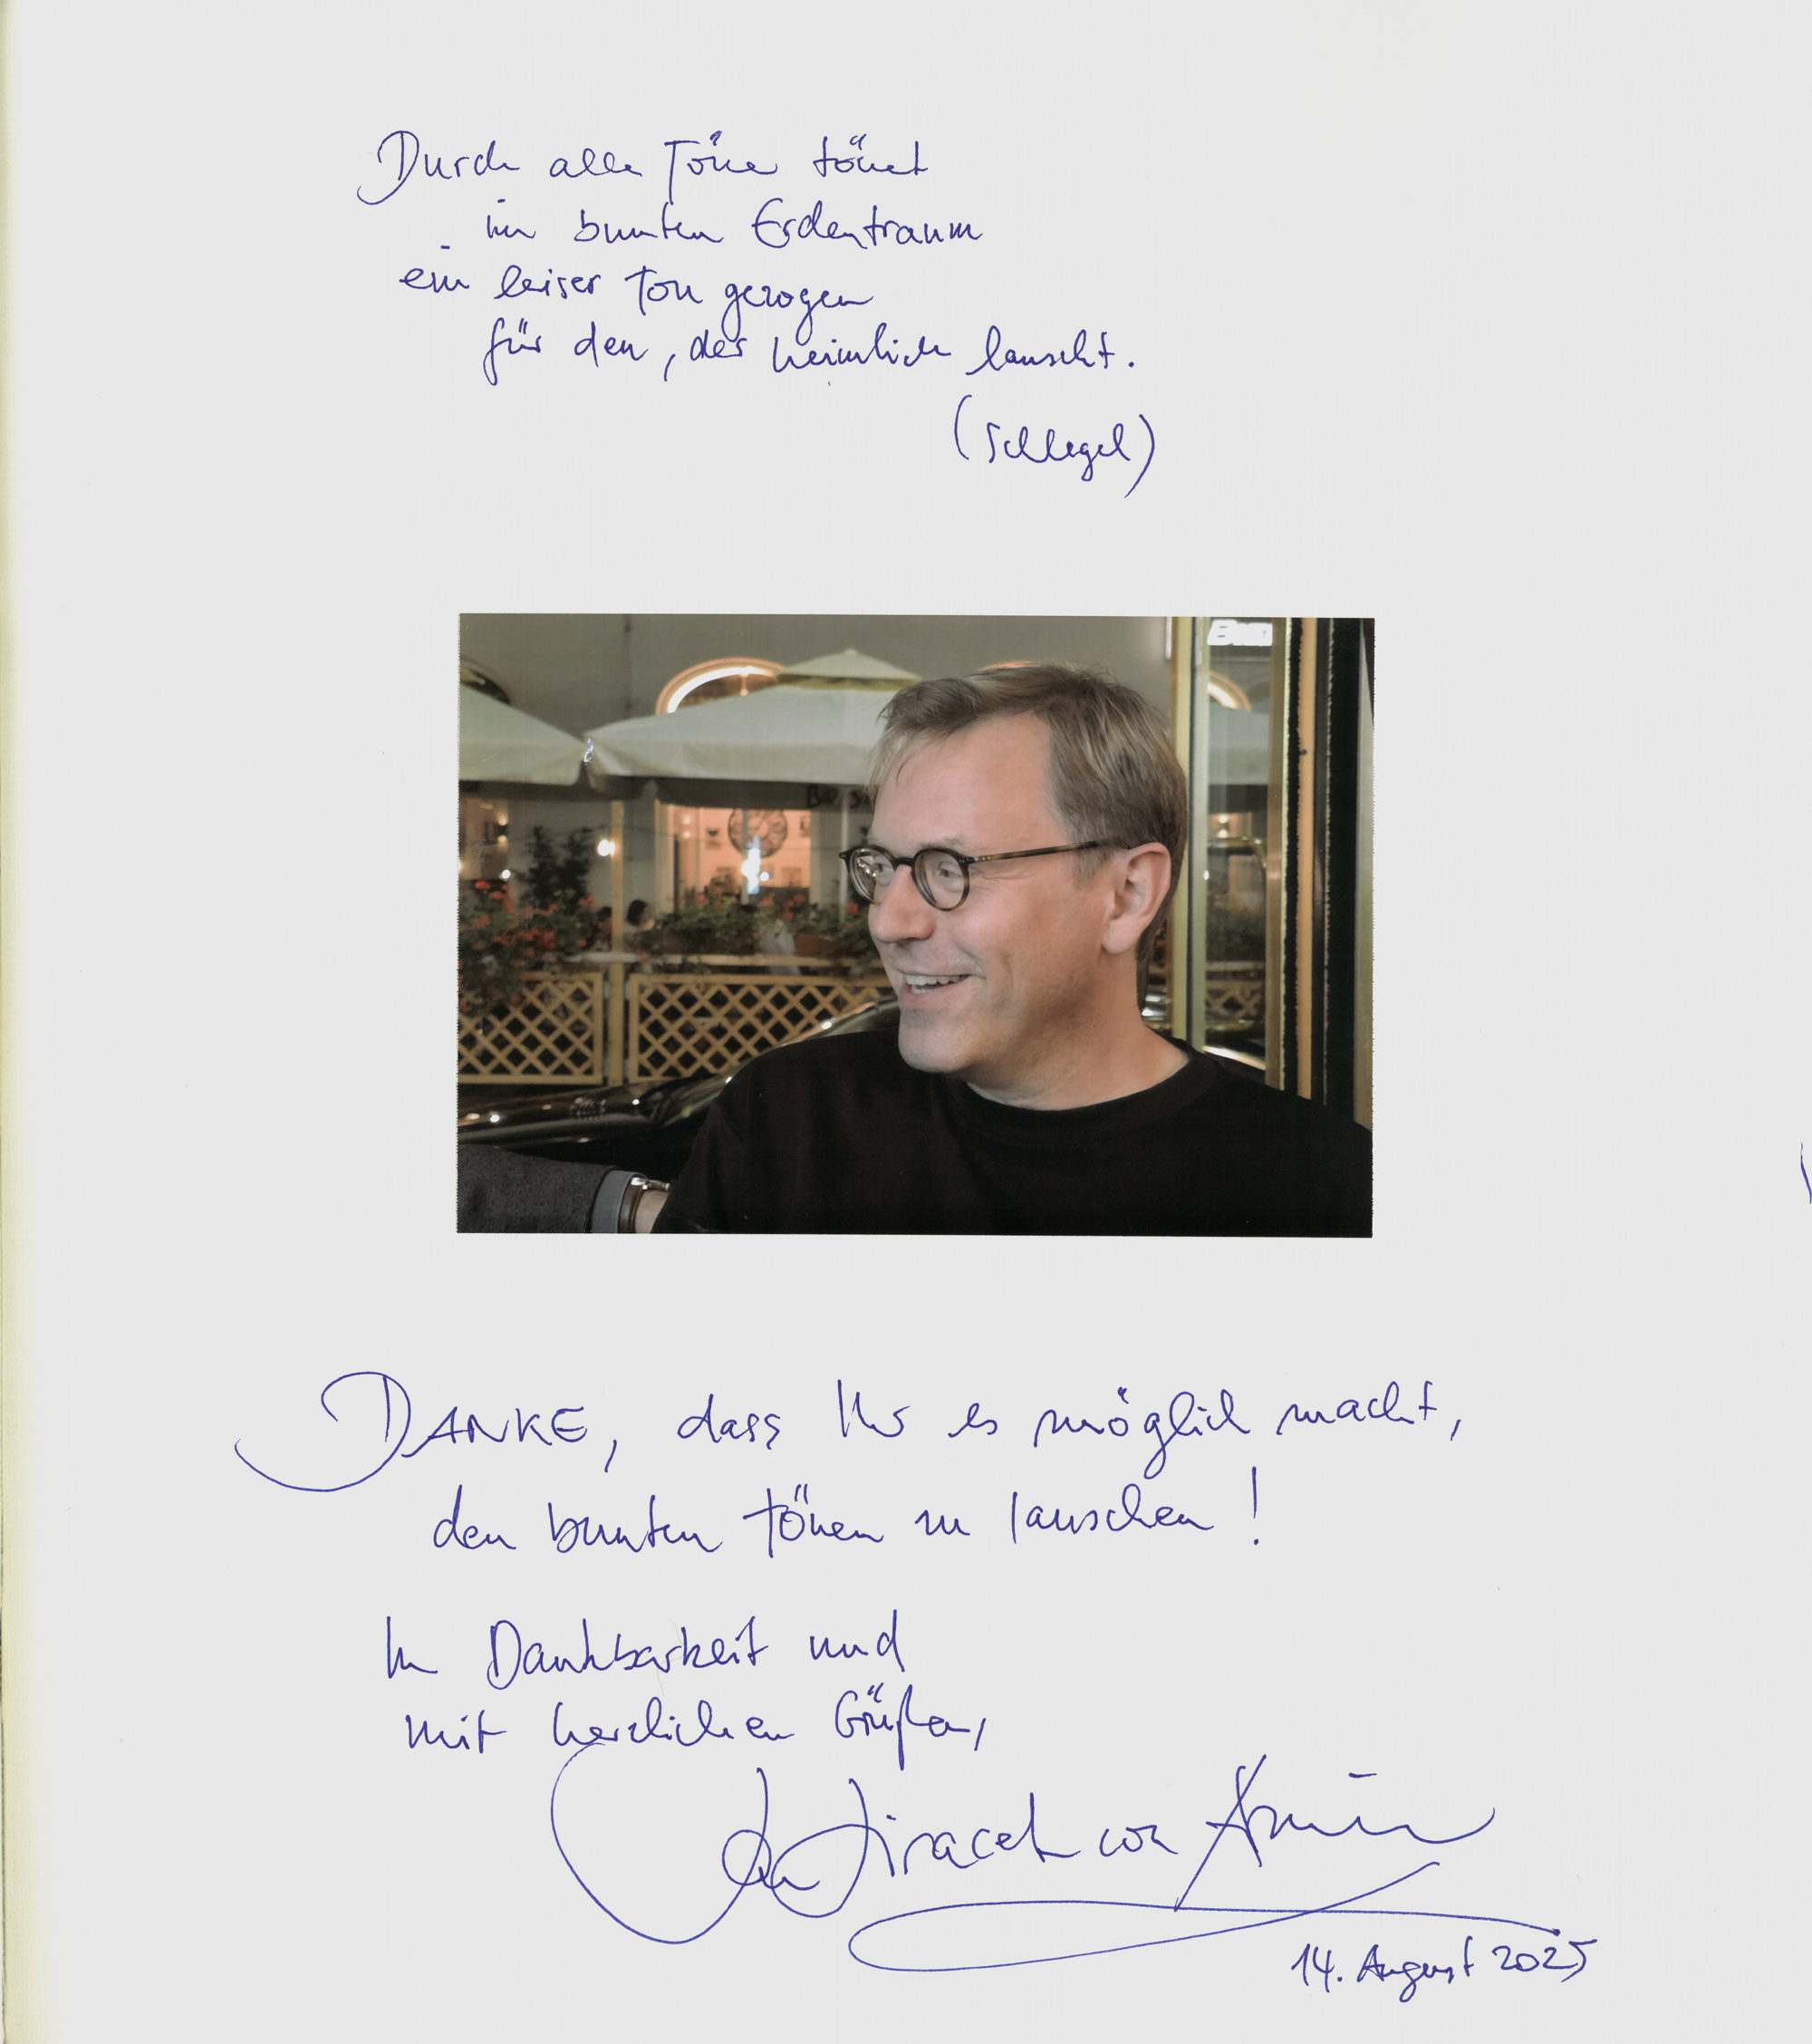 Durch alle Töne tönet
im bunten Erdentraum
ein leiser Ton gezogen
für den, der heimlich lauscht.
(Schlegel)
DANKE, dass Ihr es möglich macht,
den bunten Tönen zu lauschen!
In Dankbarkeit und
mit herzlichen Grüßen,
Jiracek von Arnim
14. August 2025